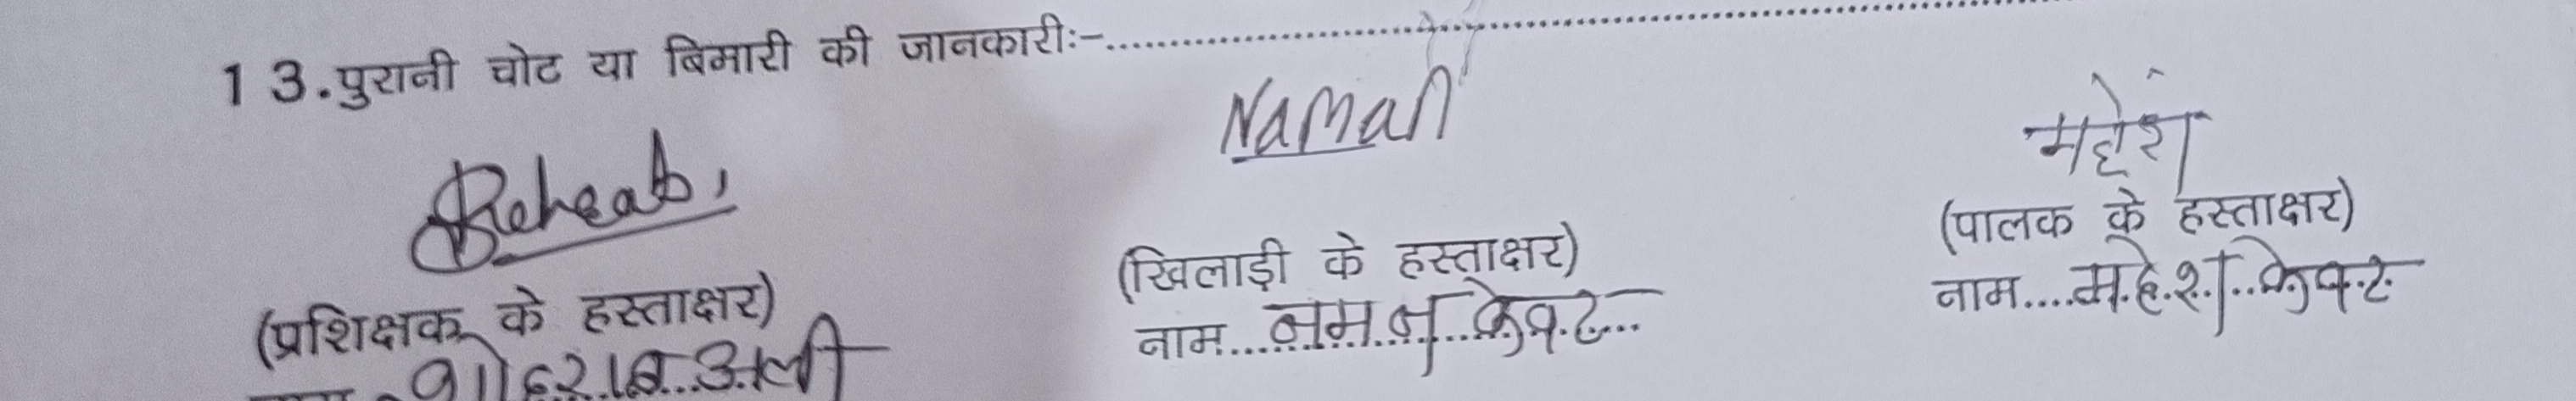 13.पुरानी चोट या बिमारी की जानकारीः-..............................
Naman
महेश
(प्रशिक्षक के हस्ताक्षर)
(खिलाड़ी के हस्ताक्षर)
(पालक के हस्ताक्षर)
अली
नाम....नमन केवट....
नाम....महेश केवट